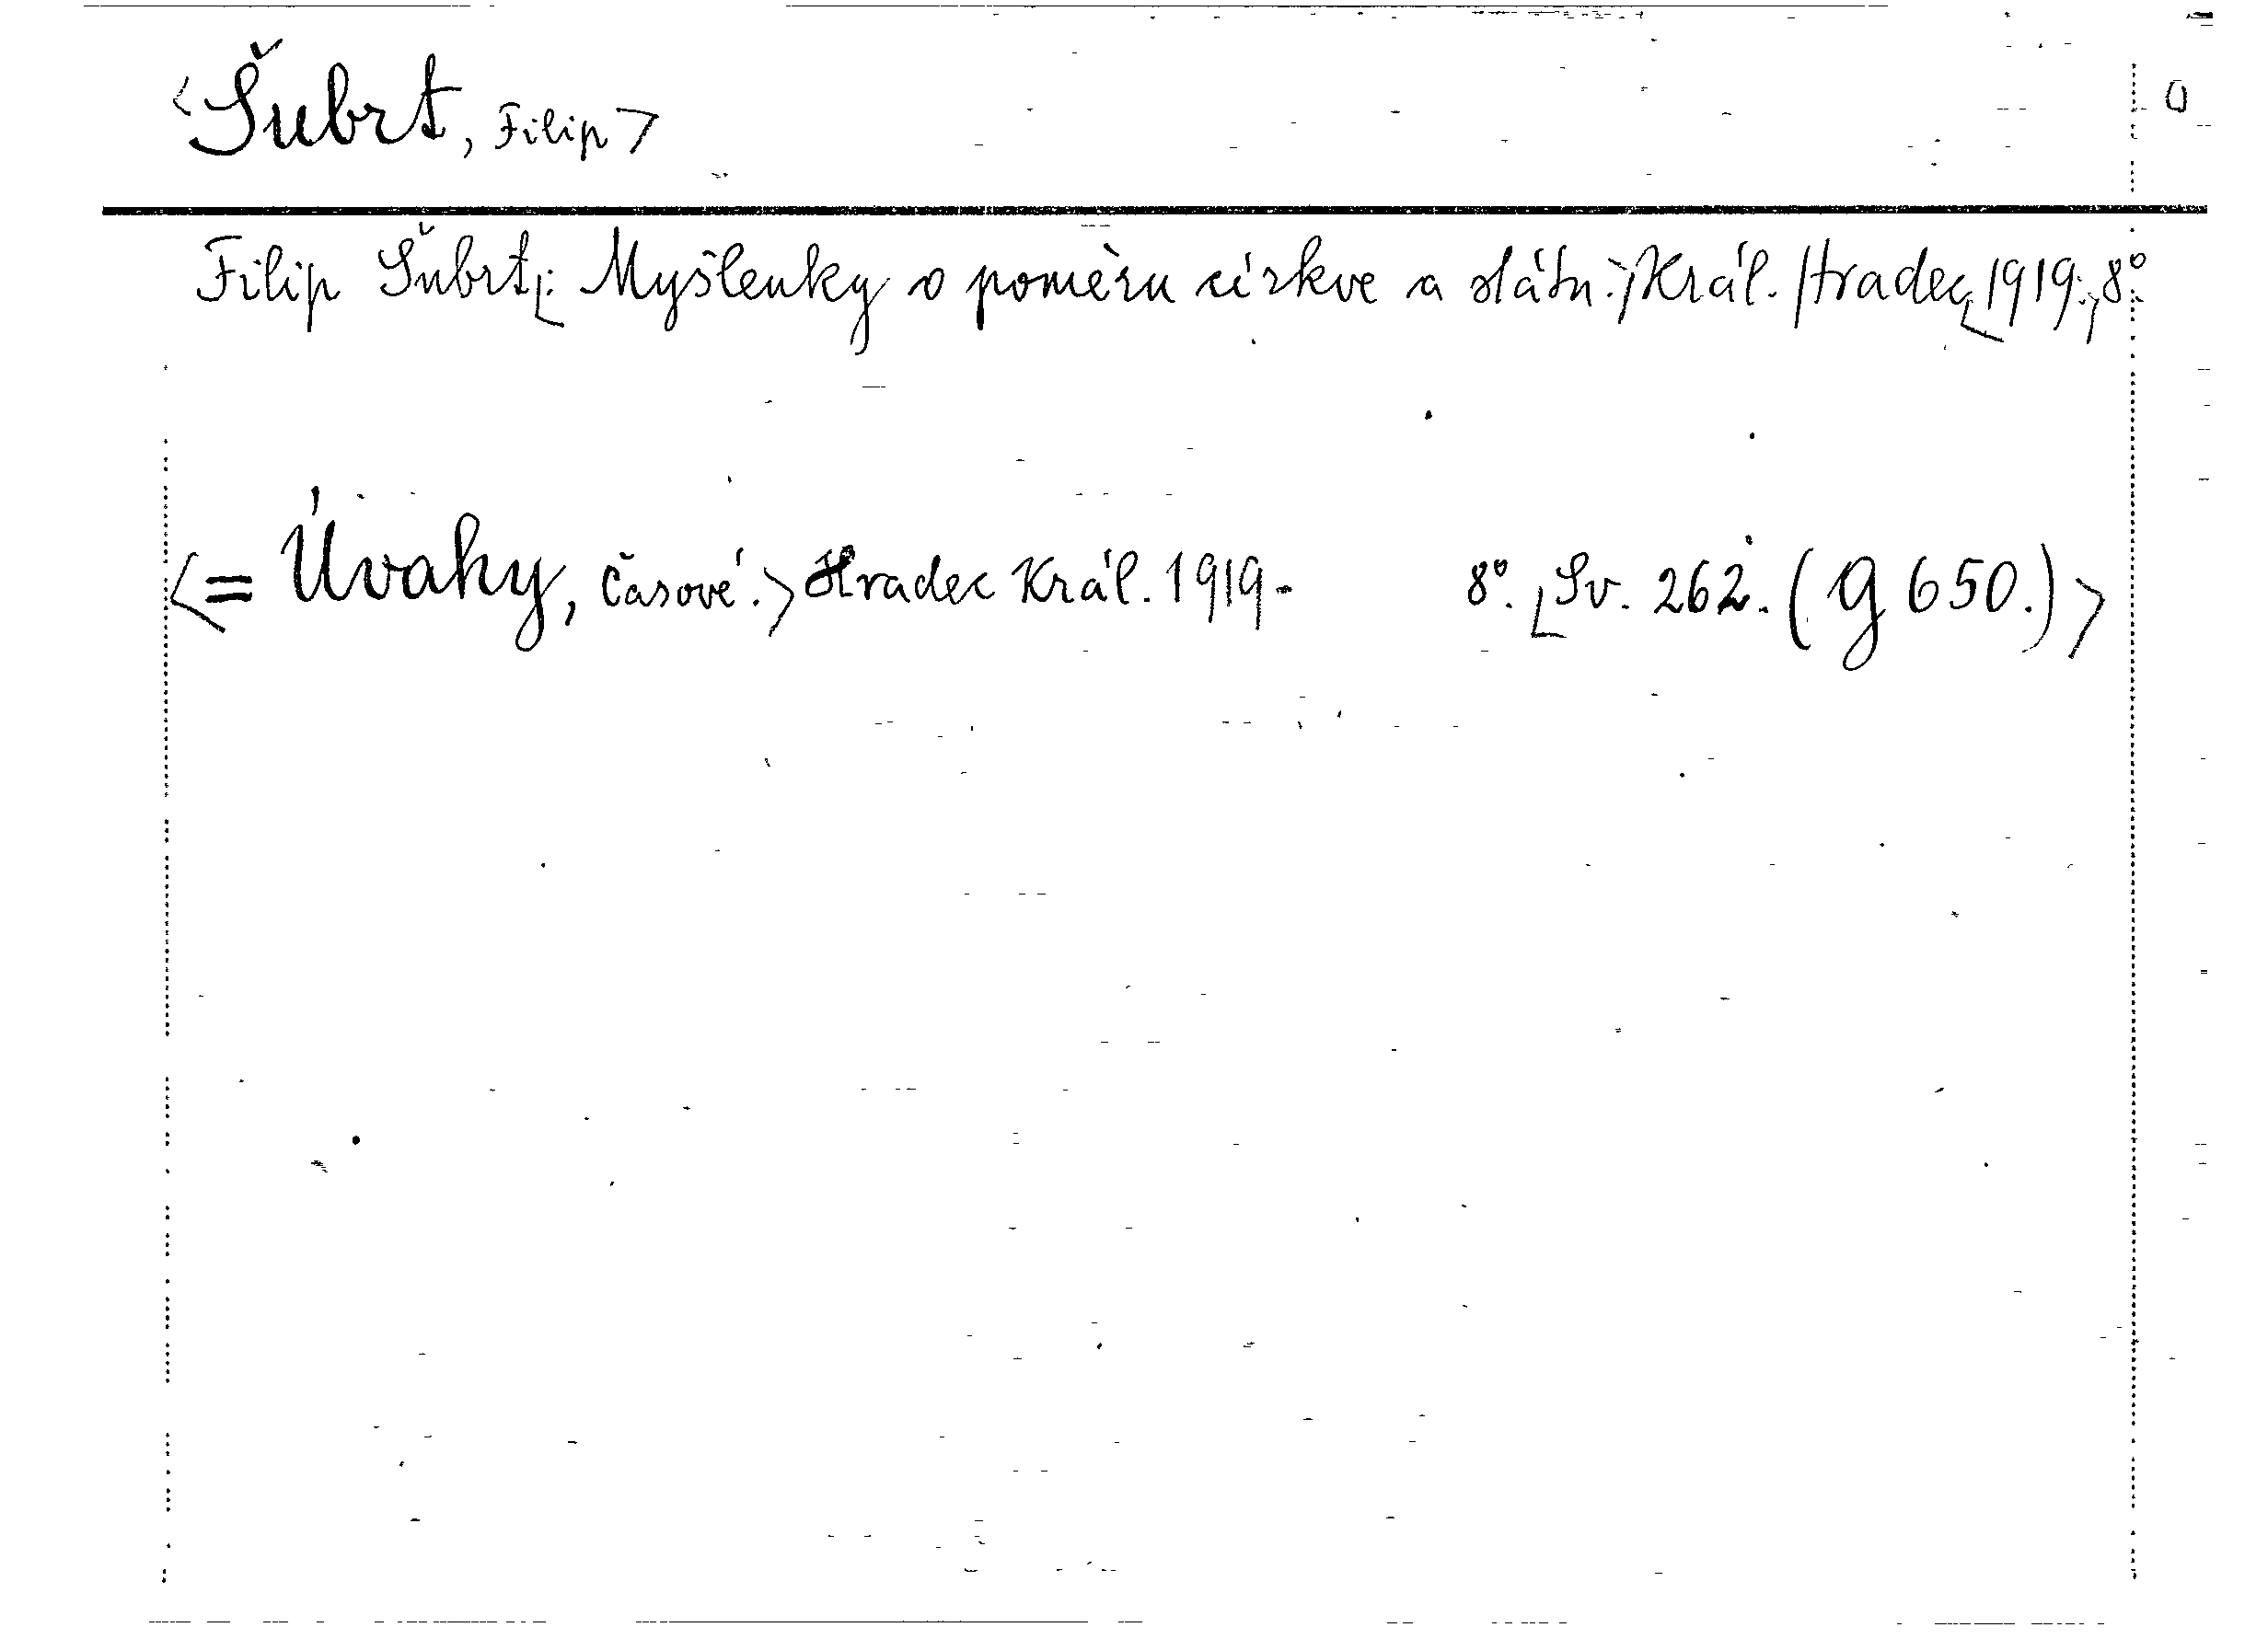 <Šubrt, Filip> 0
Filip Šubrt: Myšlenky o poměru církve a státu. Král. Hradec 1919. 8°.
<= Úvahy, Časové.> Hradec Král. 1919- 8°. <Sv. 262. (g 650.)>